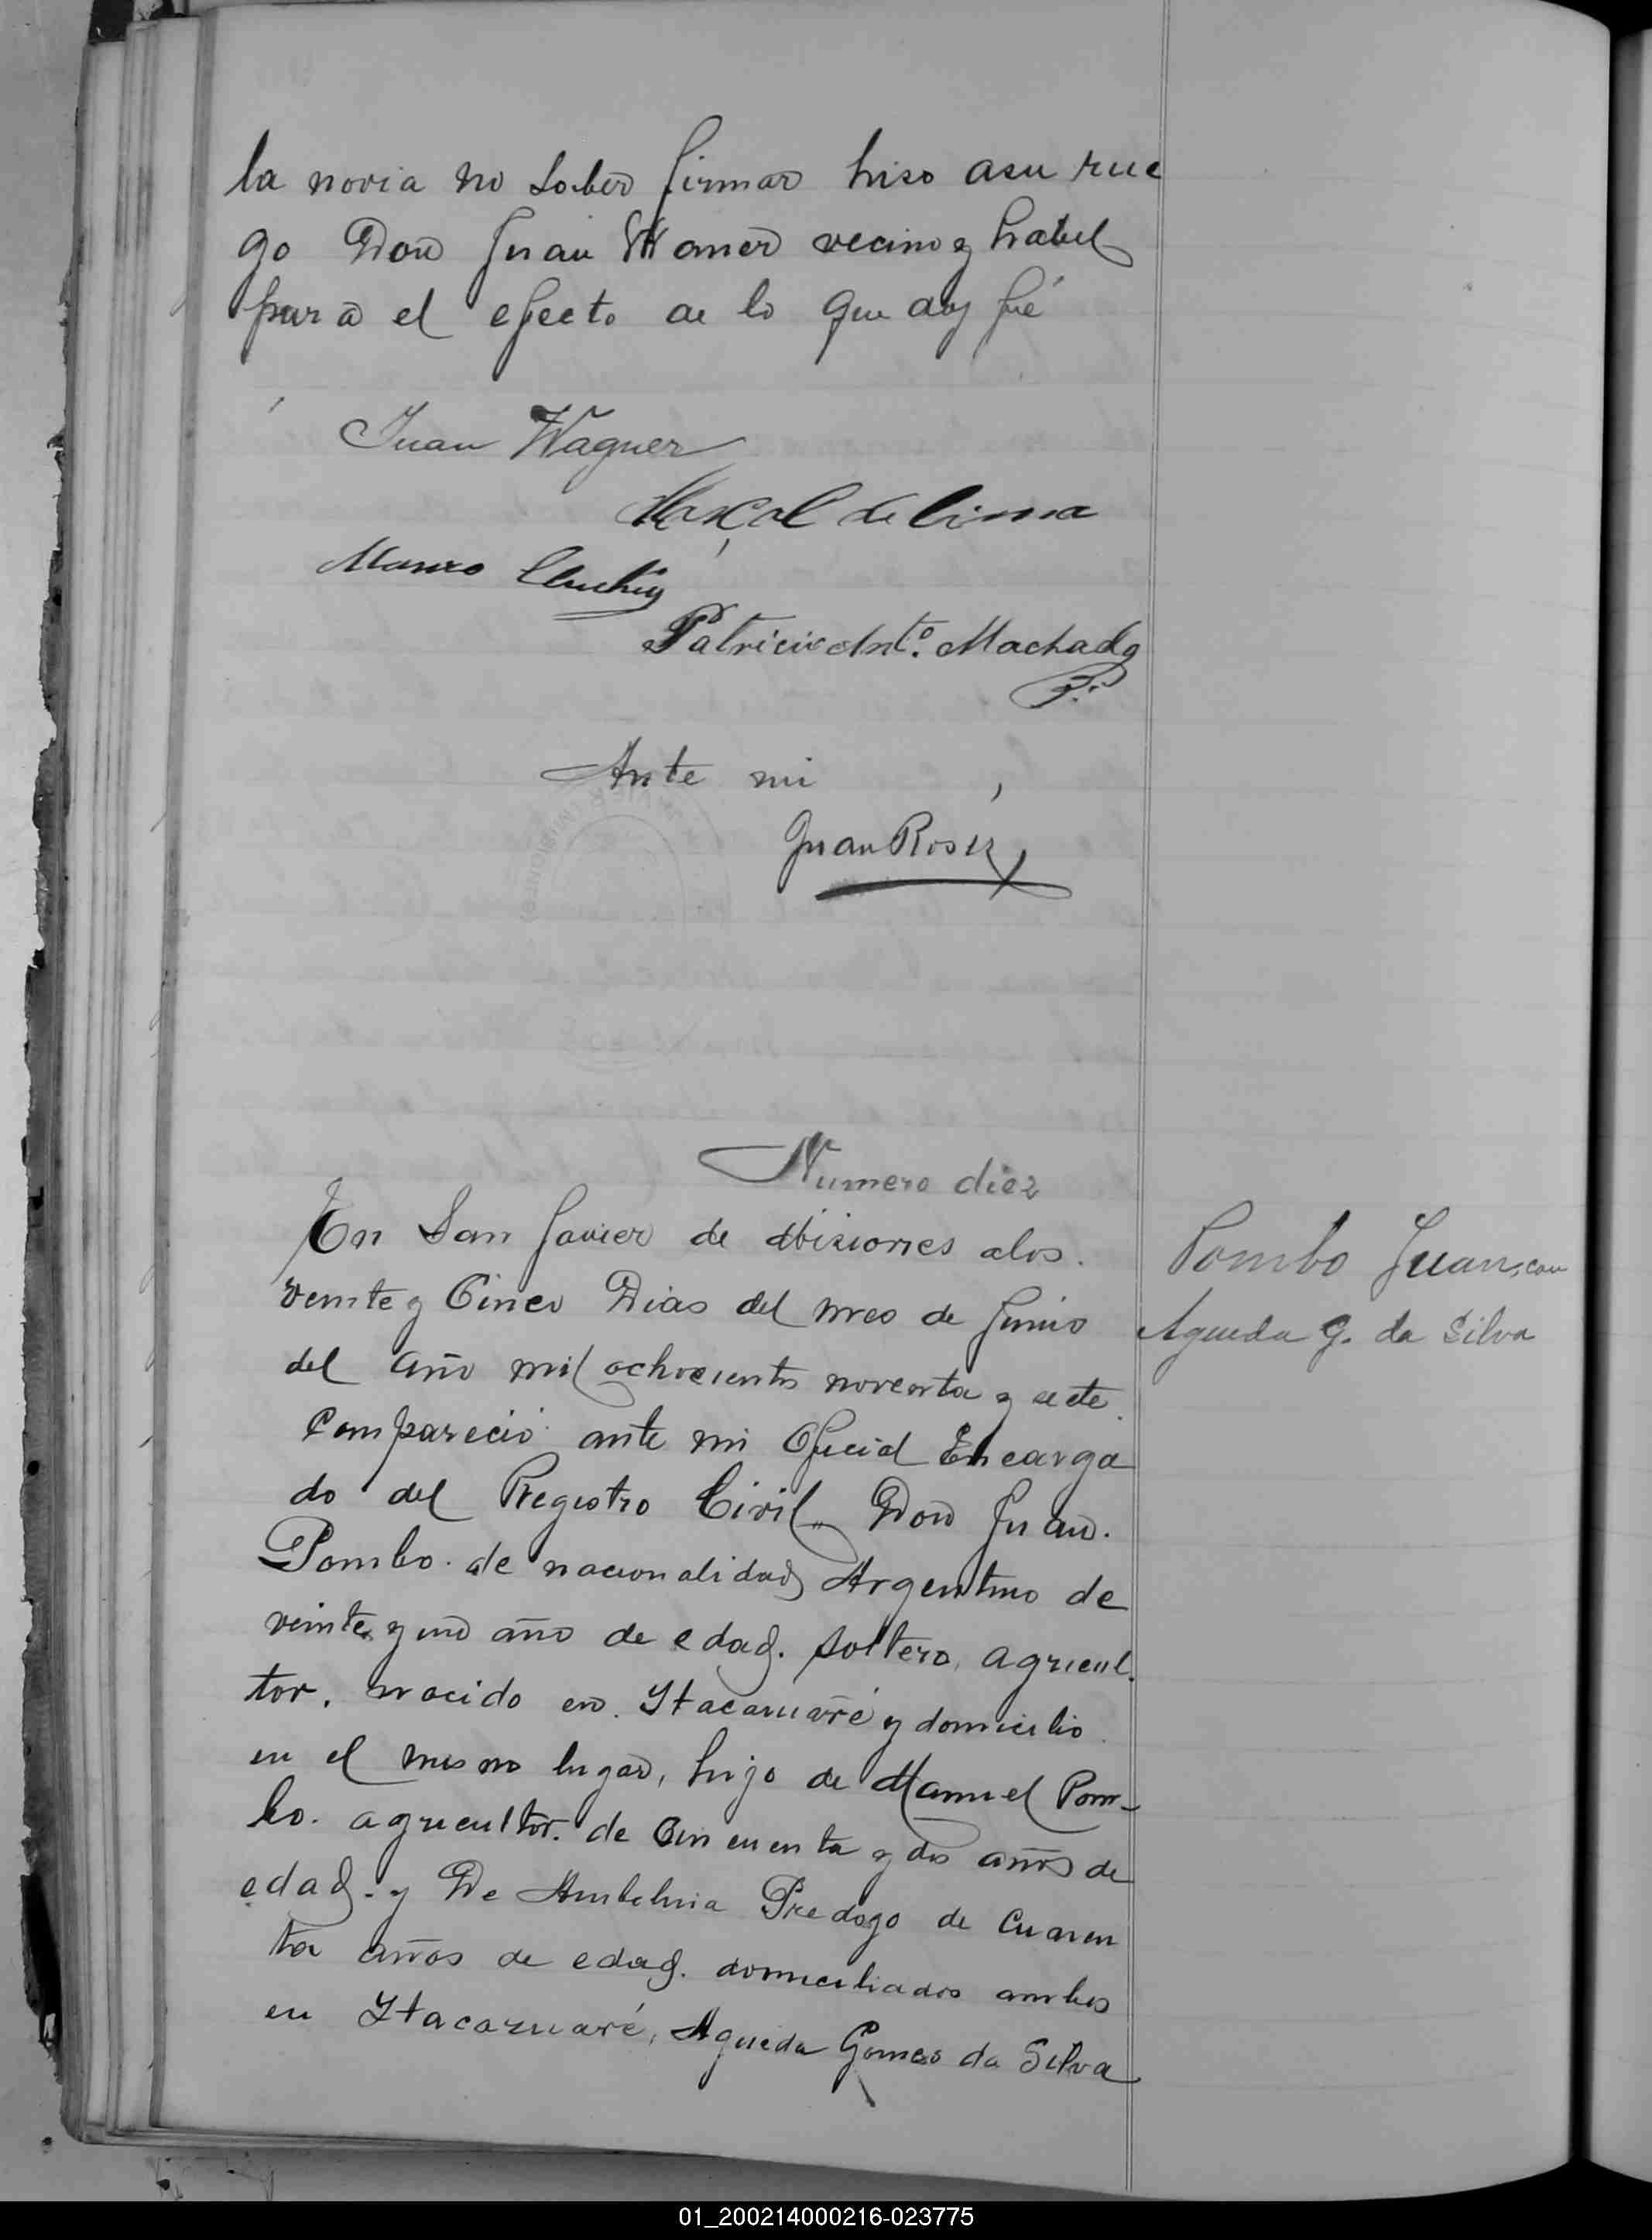 la novia no saber firmar hiso asu rue
go Don Juan Waner vecino y habil
para el efecto de lo que doy fé
Juan Wagner
de Lima
Patricio Ant.º Machado
Ante mi
Juan Rosés
Numero diez
En San Javier de Misiones alos
veinte y Cinco Dias del mes de Junio
Pombo Juan, con
Agueda G. da Silva
del año mil ochocientos noventa y siete
Compareció ante mi Oficial Encarga
do del Registro Civil Don Juan
Pombo de nacionalidad Argentino de
veinte y uno año de edad. soltero, agricul
tor. nacido en Ytacaruaré y domicilio
en el mismo lugar, hijo de Manuel Pom-
bo. agricultor. de Cincuenta y dos años de
edad. y De de Cuaren
ta años de edad. domiciliados ambos
en Ytacaruaré, Agueda Gomes da Silva
01_200214000216-023775